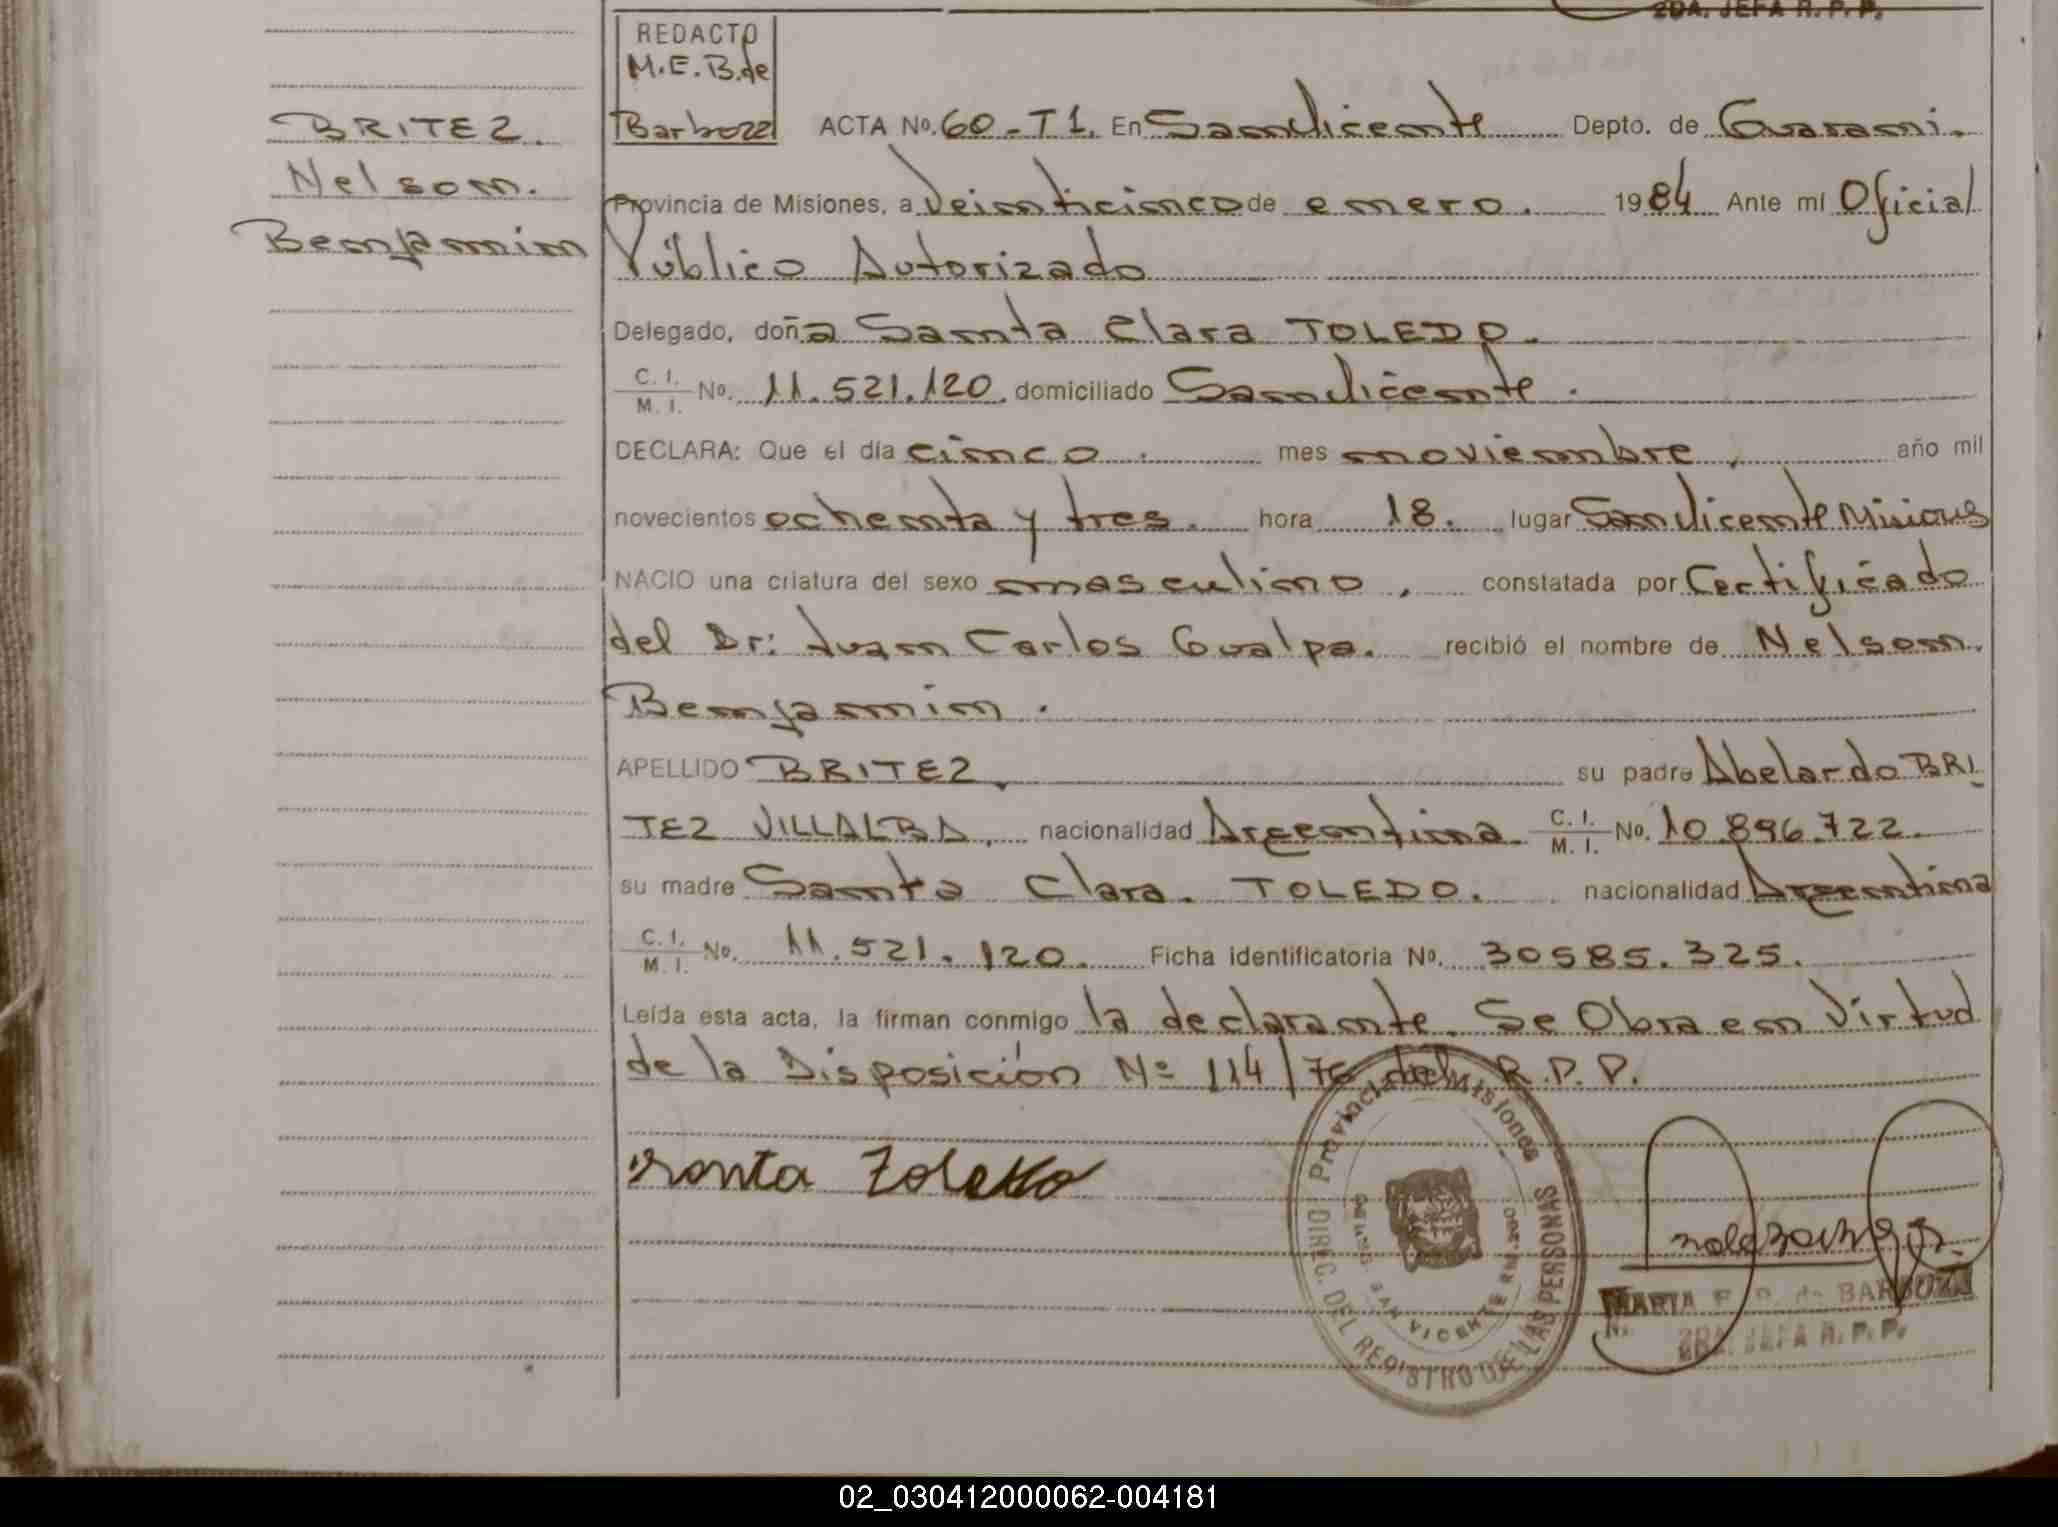 2DA. JEFA R. P. P.
REDACTO
M.E.B. de
Barboza
BRITEZ.
Nelson.
Benjamin
ACTA No. 60 - T1. En San Vicente Depto. de Guarani.
Provincia de Misiones, a Veinticinco de enero. 1984 Ante mí Oficial
Público Autorizado
Delegado, doña Santa Clara TOLEDO.
C. I. / M. I. No. 11.521.120. domiciliado San Vicente.
DECLARA: Que el día cinco. mes noviembre, año mil
novecientos ochenta y tres. hora 18. lugar San Vicente Misiones
NACIO una criatura del sexo masculino, constatada por Certificado
del Dr: Juan Carlos Gualpa. recibió el nombre de Nelson.
Benjamin.
APELLIDO BRITEZ. su padre Abelardo BRI
TEZ VILLALBA, nacionalidad Argentina. C. I. / M. I. No. 10.896.722.
su madre Santa Clara. TOLEDO. nacionalidad Argentina
C. I. / M. I. No. 11.521.120. Ficha identificatoria No. 30585.325.
Leída esta acta, la firman conmigo la declarante. Se Obra en Virtud
de la Disposición Nº 114/76 del R.P.P.
Santa Toledo
Provincia de Misiones
DIREC. DEL REGISTRO DE LAS PERSONAS
SAN VICENTE
MARIA E. B. de BARBOZA
2DA. JEFA R. P. P.
02_030412000062-004181